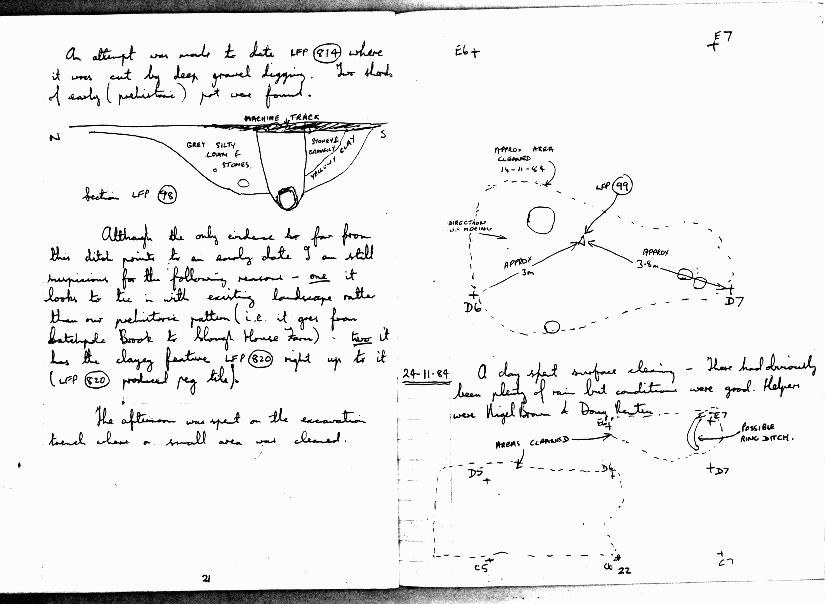 An attempt was made to date LFP 814 where
it was cut by deep gravel digging. Two sherds
of early (prehistoric) pot were found.
MACHINE TRACK
N
S
GREY SILTY
LOAM &
STONES
STONEY &
GRAVELLY
YELLOWY CLAY
Section LFP 98
Although the only evidence so far from
this ditch points to an early date I am still
suspicious for the following reasons - one it
looks to tie in with existing landscape rather
than our prehistoric pattern (i.e. it goes from
Brook to Slough House Farm) - two it
has the clayey feature LFP 820 right up to it
(LFP 820 produced peg tile).
The afternoon was spent on the excavation
trench where a small area was cleaned.
21
E6
E7
APPROX AREA
CLEANED
14-11-84
LFP 99
DIRECTION
OF HOEING
APPROX
3m
APPROX
3.8m
D6
D7
24-11-84 A day spent surface cleaning - There had obviously
been plenty of rain but conditions were good. Helpers
were Nigel Brown & Doug
E6
E7
AREAS CLEANED
POSSIBLE
RING DITCH.
D5
D6
D7
C5
C6
C7
22